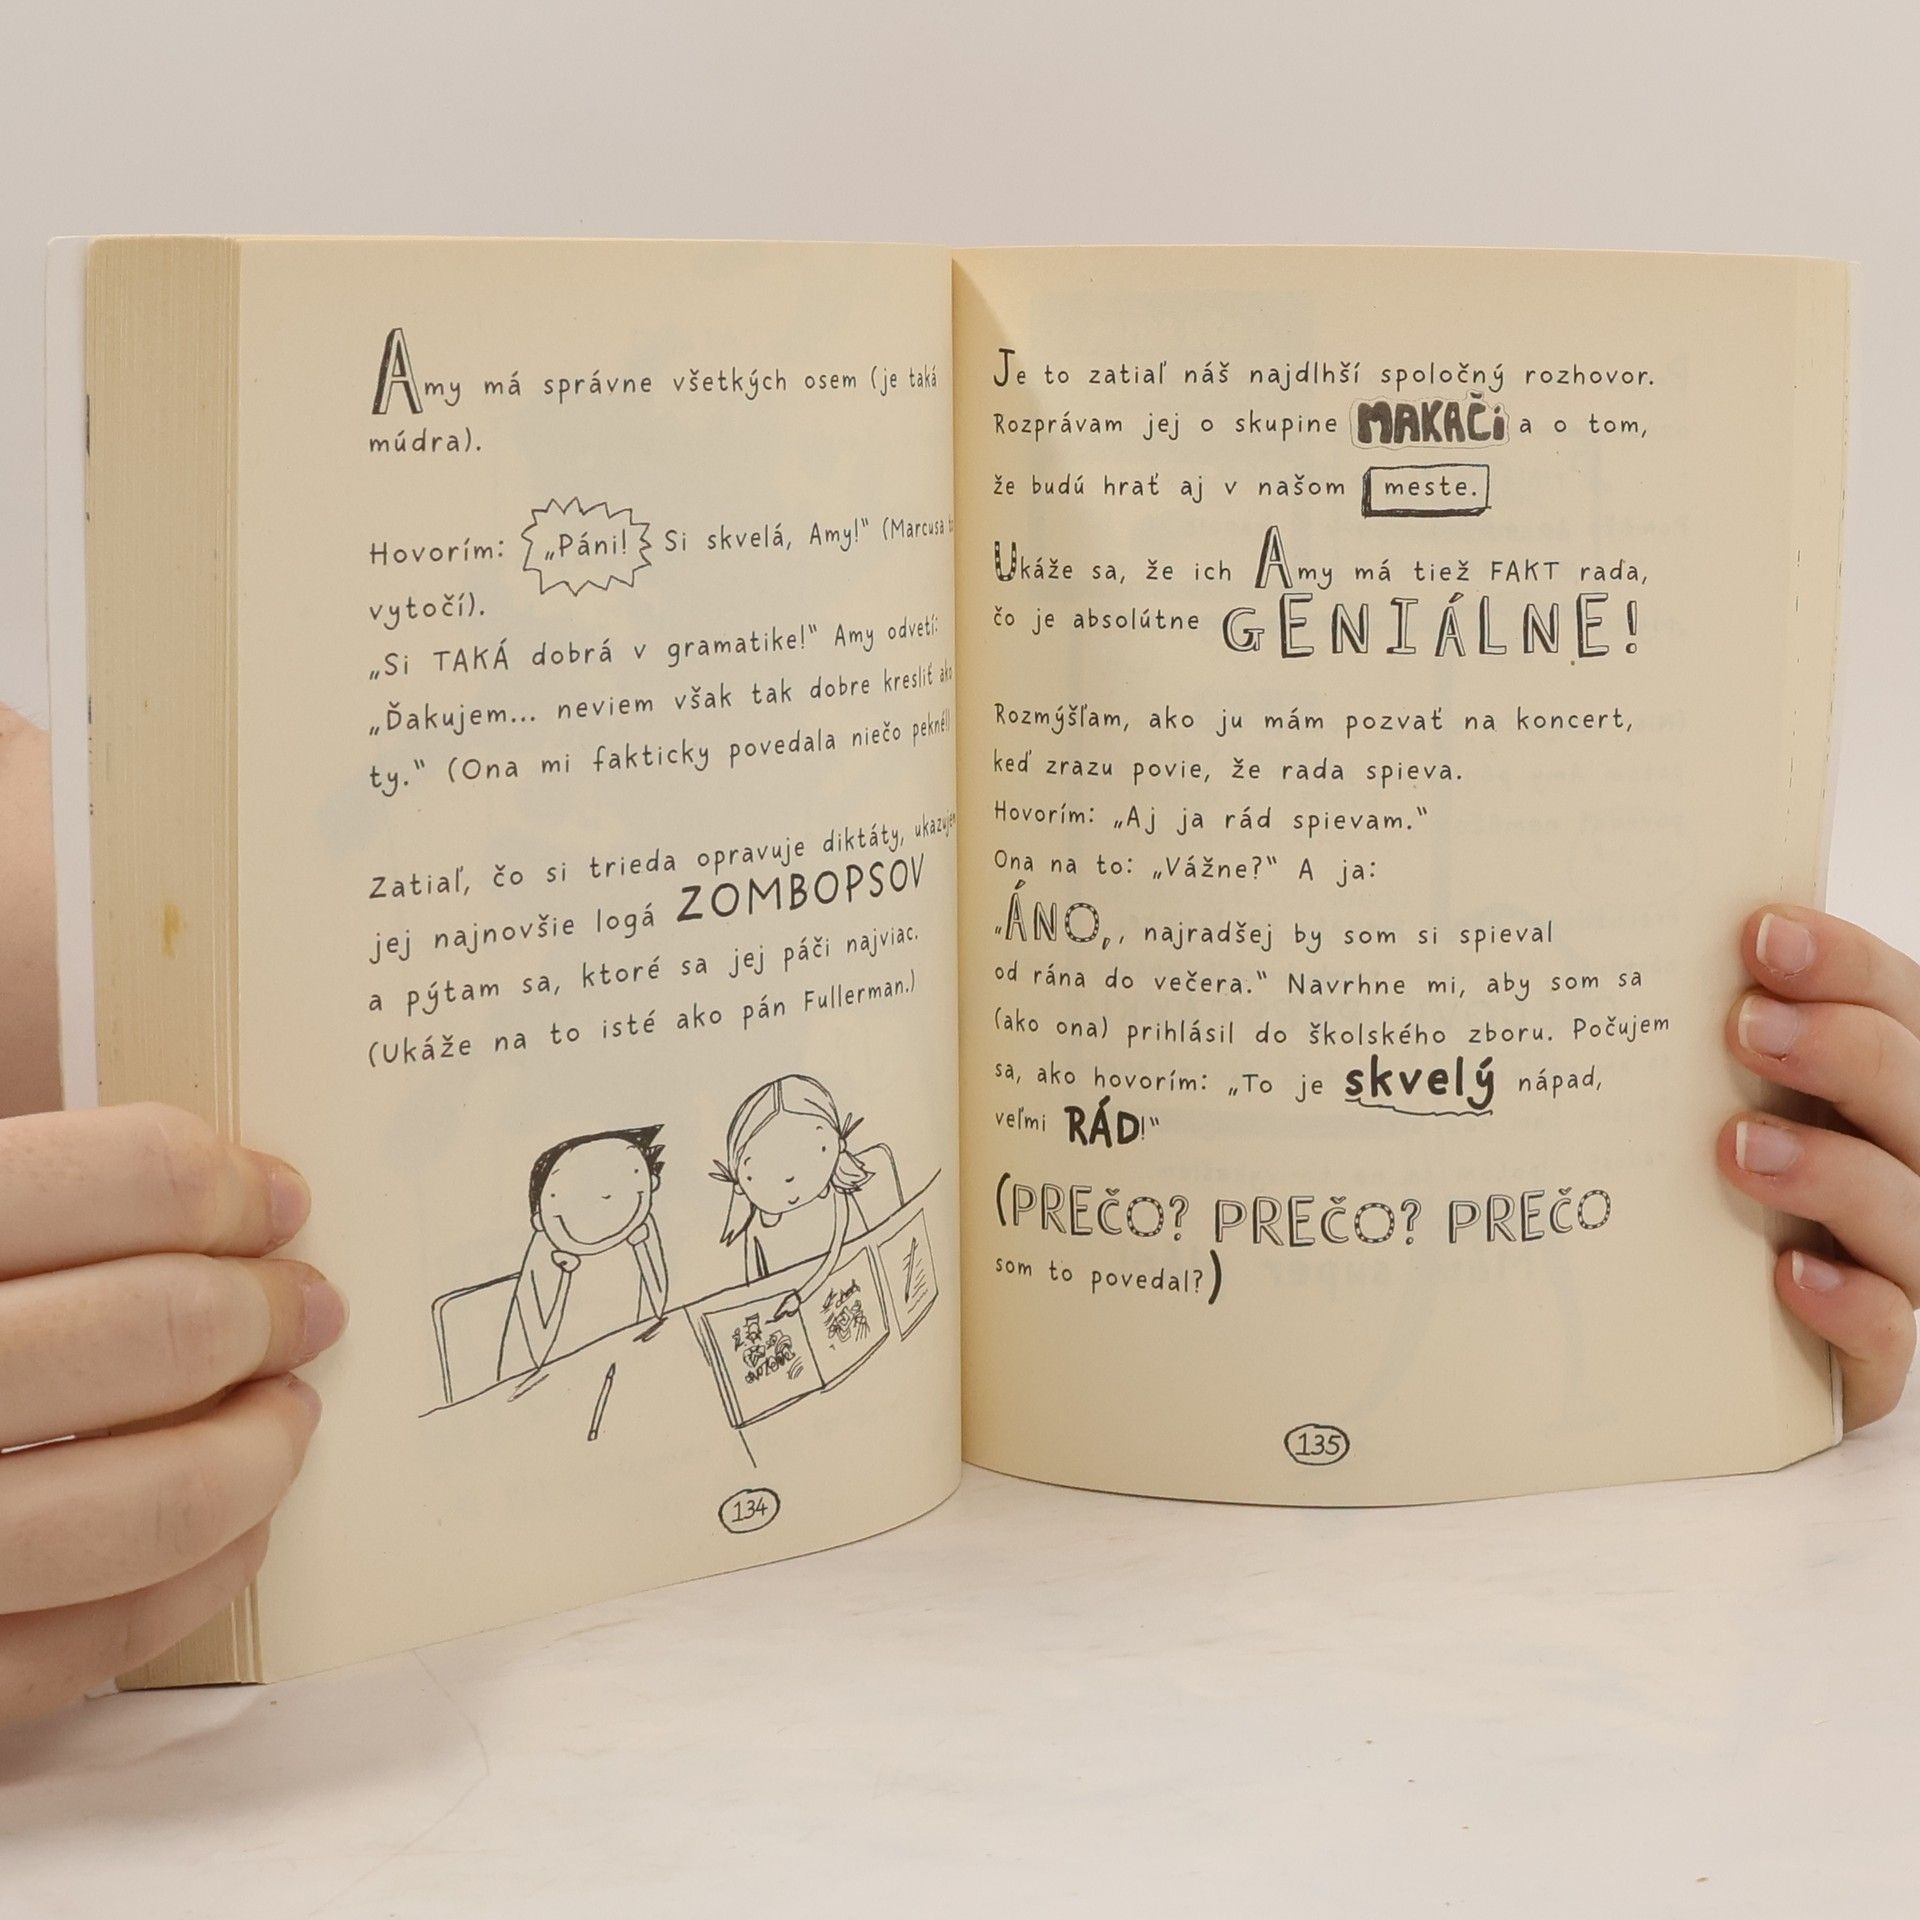 Amy má správne všetkých osem (je taká
múdra).
Hovorím: „Páni! Si skvelá, Amy!“ (Marcusa
vytočí).
„Si TAKÁ dobrá v gramatike!“ Amy odvetí:
„Ďakujem... neviem však tak dobre kresliť ako
ty.“ (Ona mi fakticky povedala niečo pekné!)
Zatiaľ, čo si trieda opravuje diktáty,
jej najnovšie logá ZOMBOPSOV
a pýtam sa, ktoré sa jej páči najviac.
(Ukáže na to isté ako pán Fullerman.)
134
Je to zatiaľ náš najdlhší spoločný rozhovor.
Rozprávam jej o skupine MAKAČi a o tom,
že budú hrať aj v našom meste.
Ukáže sa, že ich Amy má tiež FAKT rada,
čo je absolútne GENIÁLNE!
Rozmýšľam, ako ju mám pozvať na koncert,
keď zrazu povie, že rada spieva.
Hovorím: „Aj ja rád spievam.“
Ona na to: „Vážne?“ A ja:
„ÁNO,, najradšej by som si spieval
od rána do večera.“ Navrhne mi, aby som sa
(ako ona) prihlásil do školského zboru. Počujem
sa, ako hovorím: „To je skvelý nápad,
veľmi RÁD!“
(PREČO? PREČO? PREČO
som to povedal?)
135